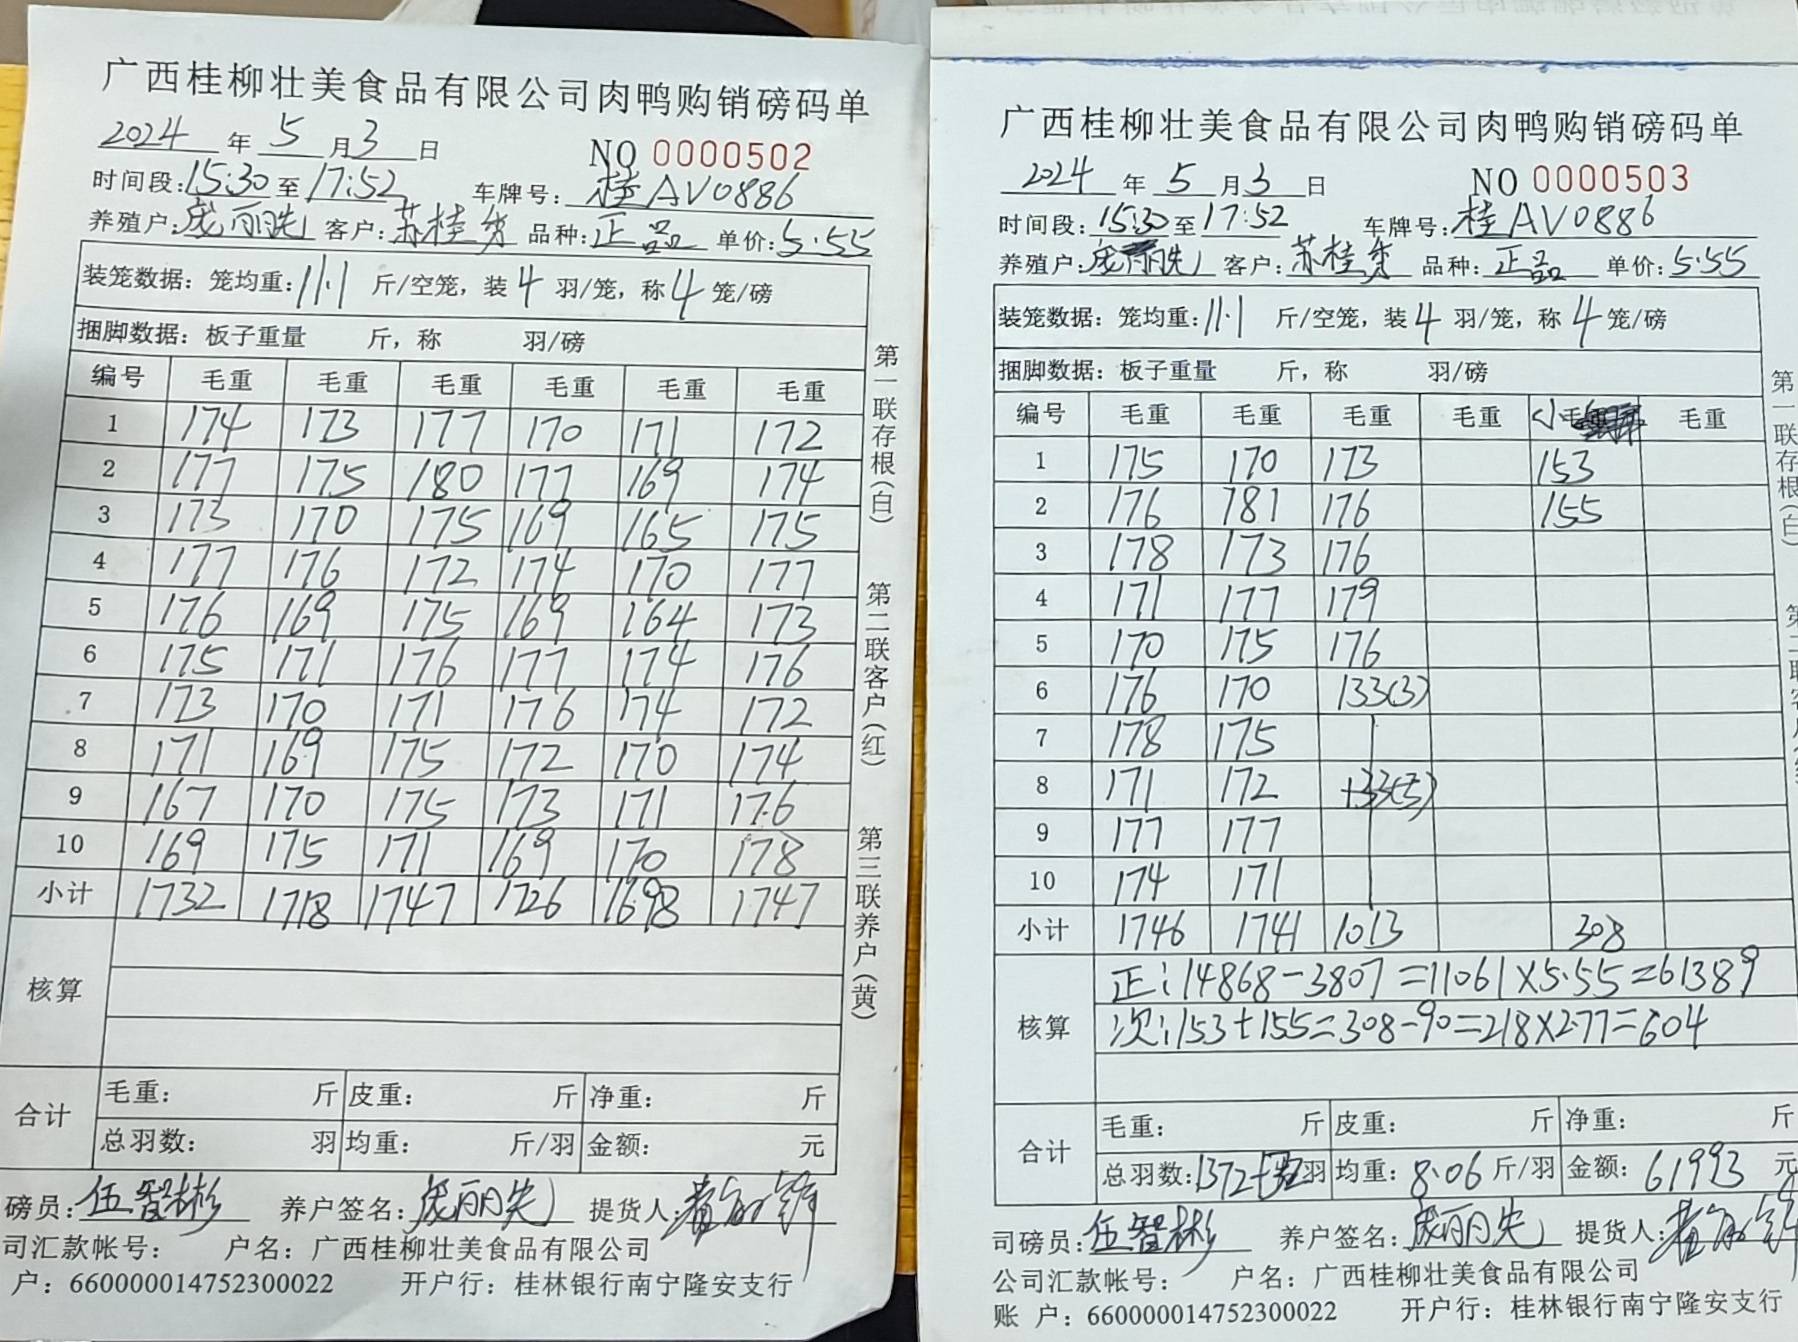 广西桂柳壮美食品有限公司肉鸭购销磅码单
2024 年 5 月 3 日 NO 0000502
时间段:15:30 至 17:52 车牌号:桂AV0886
养殖户: 丽 客户:苏桂 品种:正品 单价:5.55
装笼数据:笼均重:11.1 斤/空笼,装 4 羽/笼,称 4 笼/磅
捆脚数据:板子重量 斤,称 羽/磅
编号 毛重 毛重 毛重 毛重 毛重 毛重
1 174 173 177 170 171 172
2 177 175 180 177 169 174
3 173 170 175 169 165 175
4 177 176 172 174 170 177
5 176 169 175 169 164 173
6 175 171 176 177 174 176
7 173 170 171 176 174 172
8 171 169 175 172 170 174
9 167 170 175 173 171 176
10 169 175 171 169 170 178
小计 1732 1718 1747 1726 1698 1747
核算
合计 毛重: 斤 皮重: 斤 净重: 斤
总羽数: 羽 均重: 斤/羽 金额: 元
磅员:伍智彬 养户签名: 丽 提货人:
司汇款帐号: 户名:广西桂柳壮美食品有限公司
户:660000014752300022 开户行:桂林银行南宁隆安支行
第一联存根(白) 第二联客户(红) 第三联养户(黄)
广西桂柳壮美食品有限公司肉鸭购销磅码单
2024 年 5 月 3 日 NO 0000503
时间段:15:30 至 17:52 车牌号:桂AV0886
养殖户: 丽 客户:苏桂 品种:正品 单价:5.55
装笼数据:笼均重:11.1 斤/空笼,装 4 羽/笼,称 4 笼/磅
捆脚数据:板子重量 斤,称 羽/磅
编号 毛重 毛重 毛重 毛重 小毛 毛重
1 175 170 173 153
2 176 181 176 155
3 178 173 176
4 171 177 179
5 170 175 176
6 176 170 133(3)
7 178 175
8 171 172
9 177 177
10 174 171
小计 1746 1741 1013 308
核算 正:14868-3807=11061×5.55=61389
次:153+155=308-90=218×2.77=604
合计 毛重: 斤 皮重: 斤 净重: 斤
总羽数:1372+ 羽 均重:8.06 斤/羽 金额:61993 元
司磅员:伍智彬 养户签名: 丽 提货人:
公司汇款帐号: 户名:广西桂柳壮美食品有限公司
账 户:660000014752300022 开户行:桂林银行南宁隆安支行
第一联存根(白)